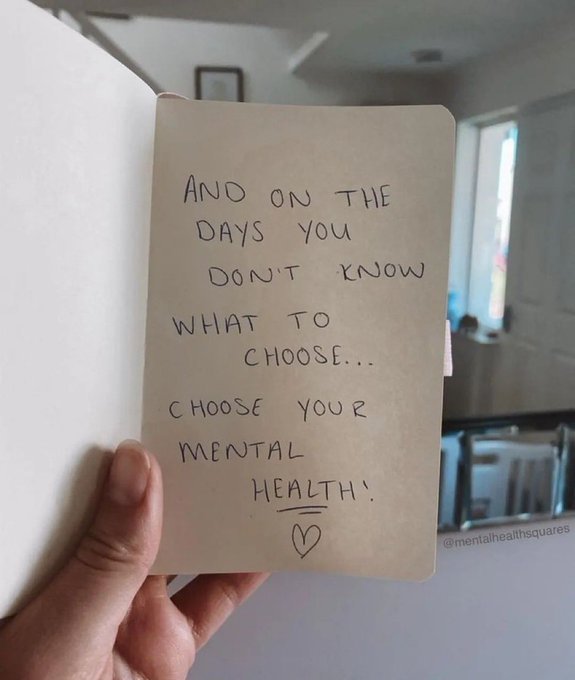 AND ON THE
DAYS YOU
DON'T KNOW
WHAT TO
CHOOSE...
CHOOSE YOUR
MENTAL
HEALTH!
@mentalhealthsquares